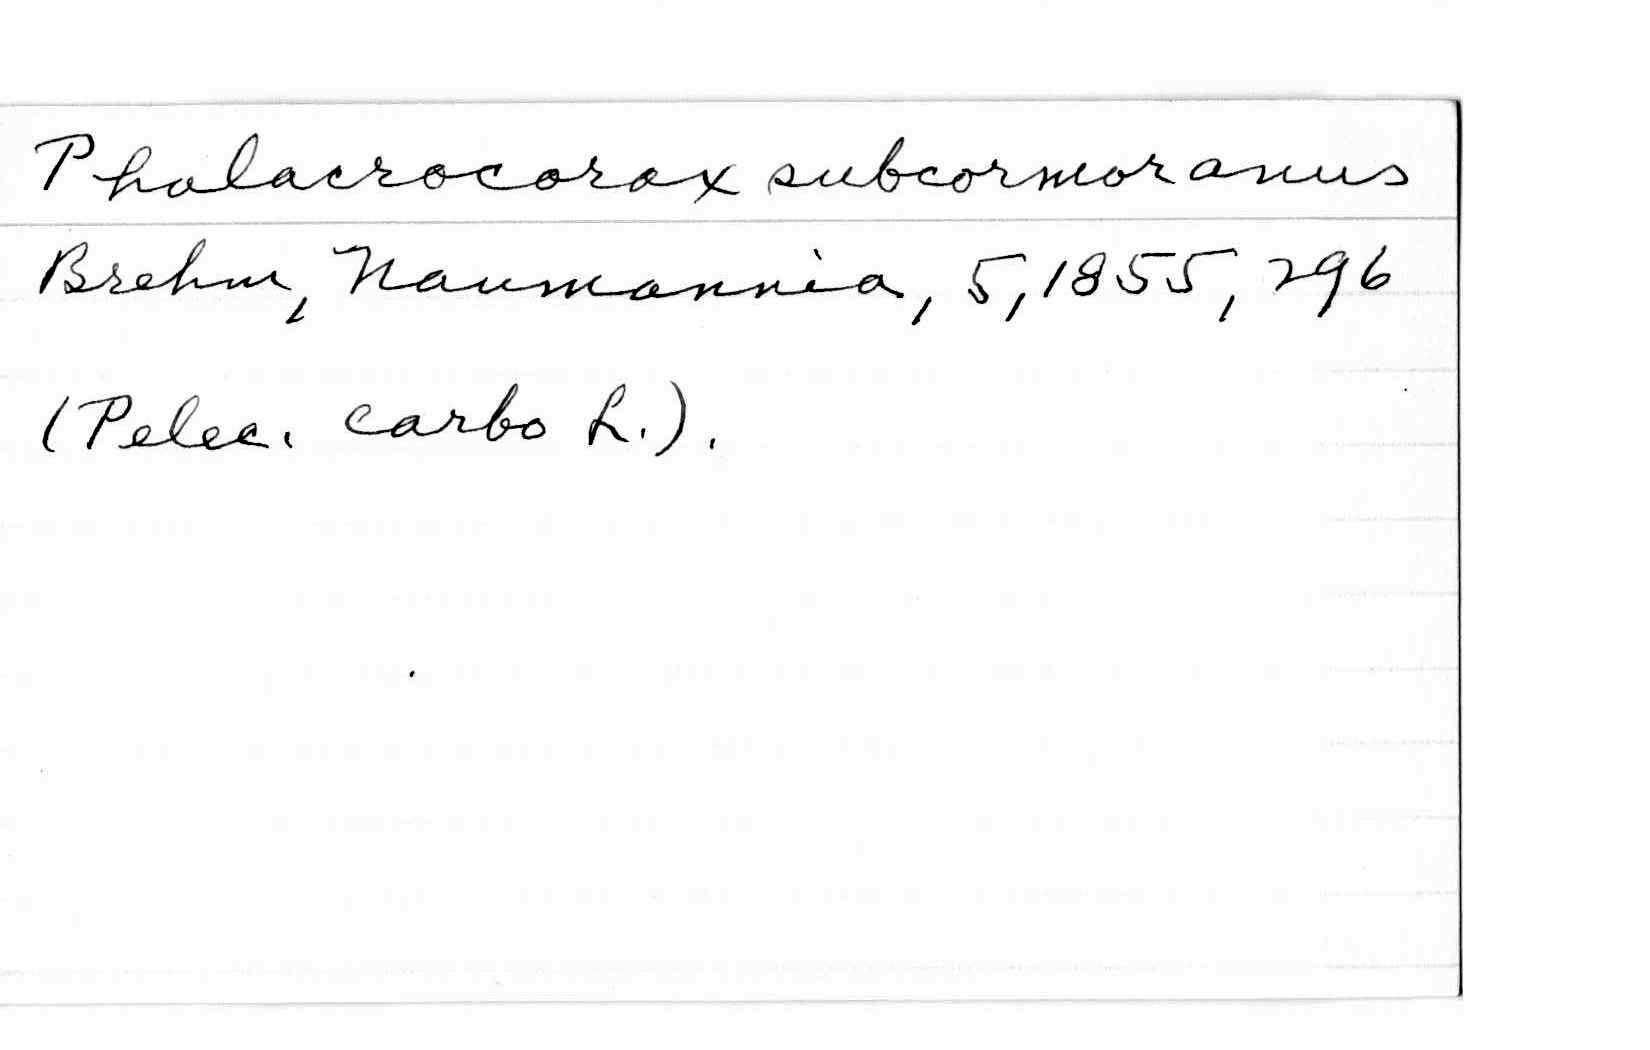 Phalacrocorax subcormoranus
Brehm, Naumannia, 5, 1855, 296
(Pelec. carbo L.).